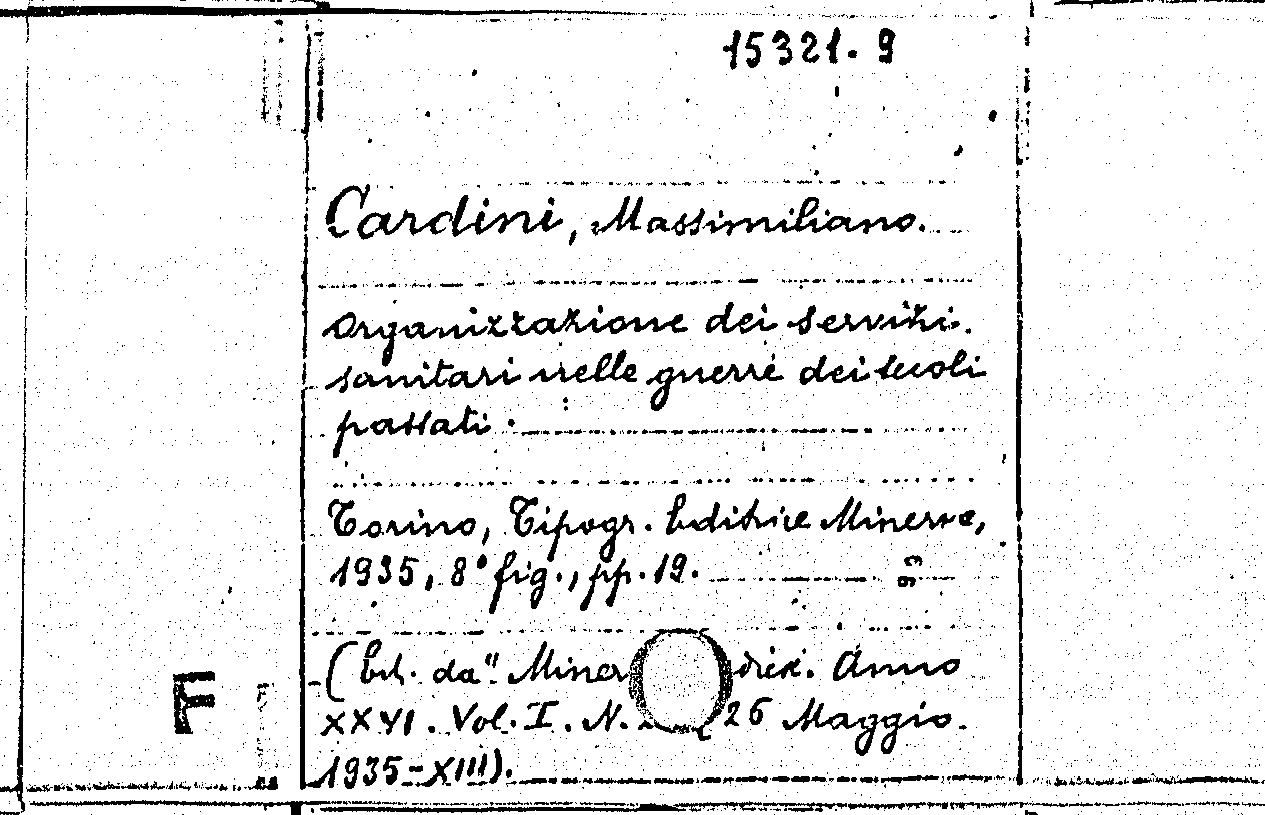 15321.9
Cardini, Massimiliano.
Organizzazione dei servizi
sanitari nelle guerre dei secoli
passati.
Torino, Tipogr. Editrice Minerva,
1935, 8° fig., pp. 19.
(Est. da" Miner
Anno
XXVI. Vol. I. N. 26 Maggio
1935-XIII).
F